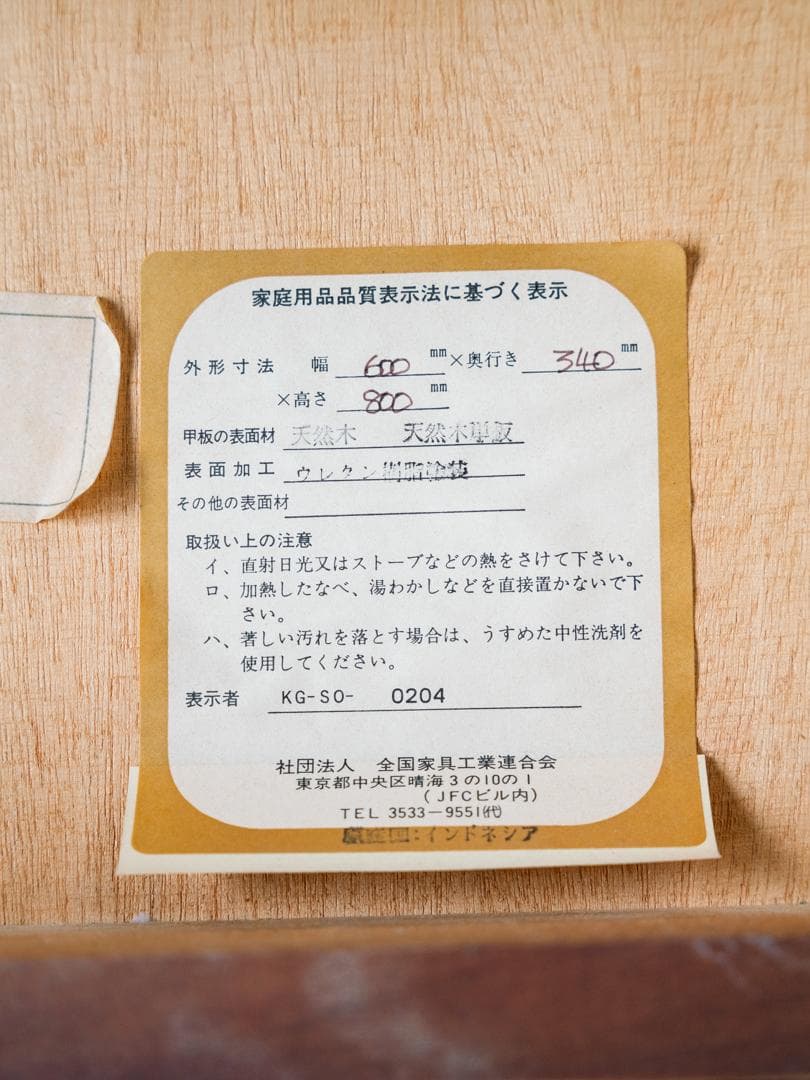 家庭用品品質表示法に基づく表示
外形寸法 幅 600 mm ×奥行き 340 mm
×高さ 800 mm
甲板の表面材 天然木 天然木単板
表面加工 ウレタン樹脂塗装
その他の表面材
取扱い上の注意
イ、直射日光又はストーブなどの熱をさけて下さい。
ロ、加熱したなべ、湯わかしなどを直接置かないで下
さい。
ハ、著しい汚れを落とす場合は、うすめた中性洗剤を
使用してください。
表示者 KG-SO- 0204
社団法人 全国家具工業連合会
東京都中央区晴海3の10の1
(JFCビル内)
TEL 3533-9551㈹
原産国:インドネシア